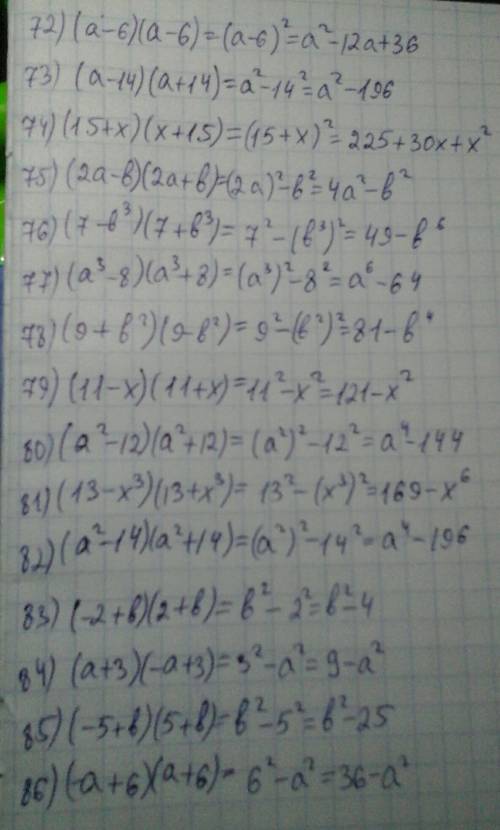 72) (a-6)(a-6)=(a-6)²=a²-12a+36
73) (a-14)(a+14)=a²-14²=a²-196
74) (15+x)(x+15)=(15+x)²=225+30x+x²
75) (2a-в)(2a+в)=(2a)²-в²=4a²-в²
76) (7-в³)(7+в³)=7²-(в³)²=49-в⁶
77) (a³-8)(a³+8)=(a³)²-8²=a⁶-64
78) (9+в²)(9-в²)=9²-(в²)²=81-в⁴
79) (11-x)(11+x)=11²-x²=121-x²
80) (a²-12)(a²+12)=(a²)²-12²=a⁴-144
81) (13-x³)(13+x³)=13²-(x³)²=169-x⁶
82) (a²-14)(a²+14)=(a²)²-14²=a⁴-196
83) (-2+в)(2+в)=в²-2²=в²-4
84) (a+3)(-a+3)=3²-a²=9-a²
85) (-5+в)(5+в)=в²-5²=в²-25
86) (-a+6)(a+6)=6²-a²=36-a²